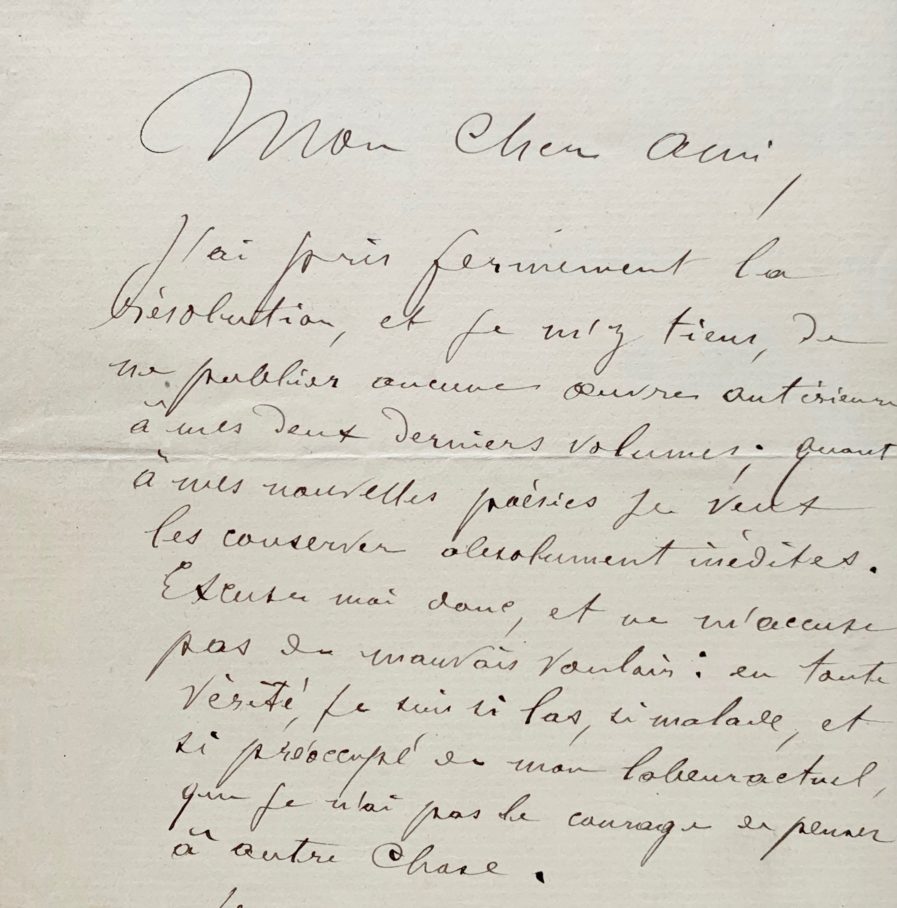 Mon cher ami,
J'ai pris fermement la
résolution, et je m'y tiens, de
ne publier aucunes œuvres antérieures
à mes deux derniers volumes ; quant
à mes nouvelles poésies je veux
les conserver absolument inédites.
Excuse moi donc, et ne m'accuse
pas de mauvais vouloir : en toute
vérité, je suis si las, si malade, et
si préoccupé de mon labeur actuel,
que je n'ai pas le courage de penser
à autre chose.